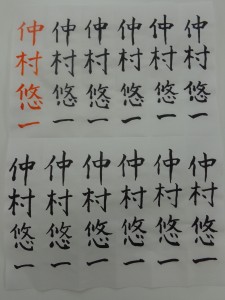 仲村悠一
仲村悠一
仲村悠一
仲村悠一
仲村悠一
仲村悠一
仲村悠一
仲村悠一
仲村悠一
仲村悠一
仲村悠一
仲村悠一